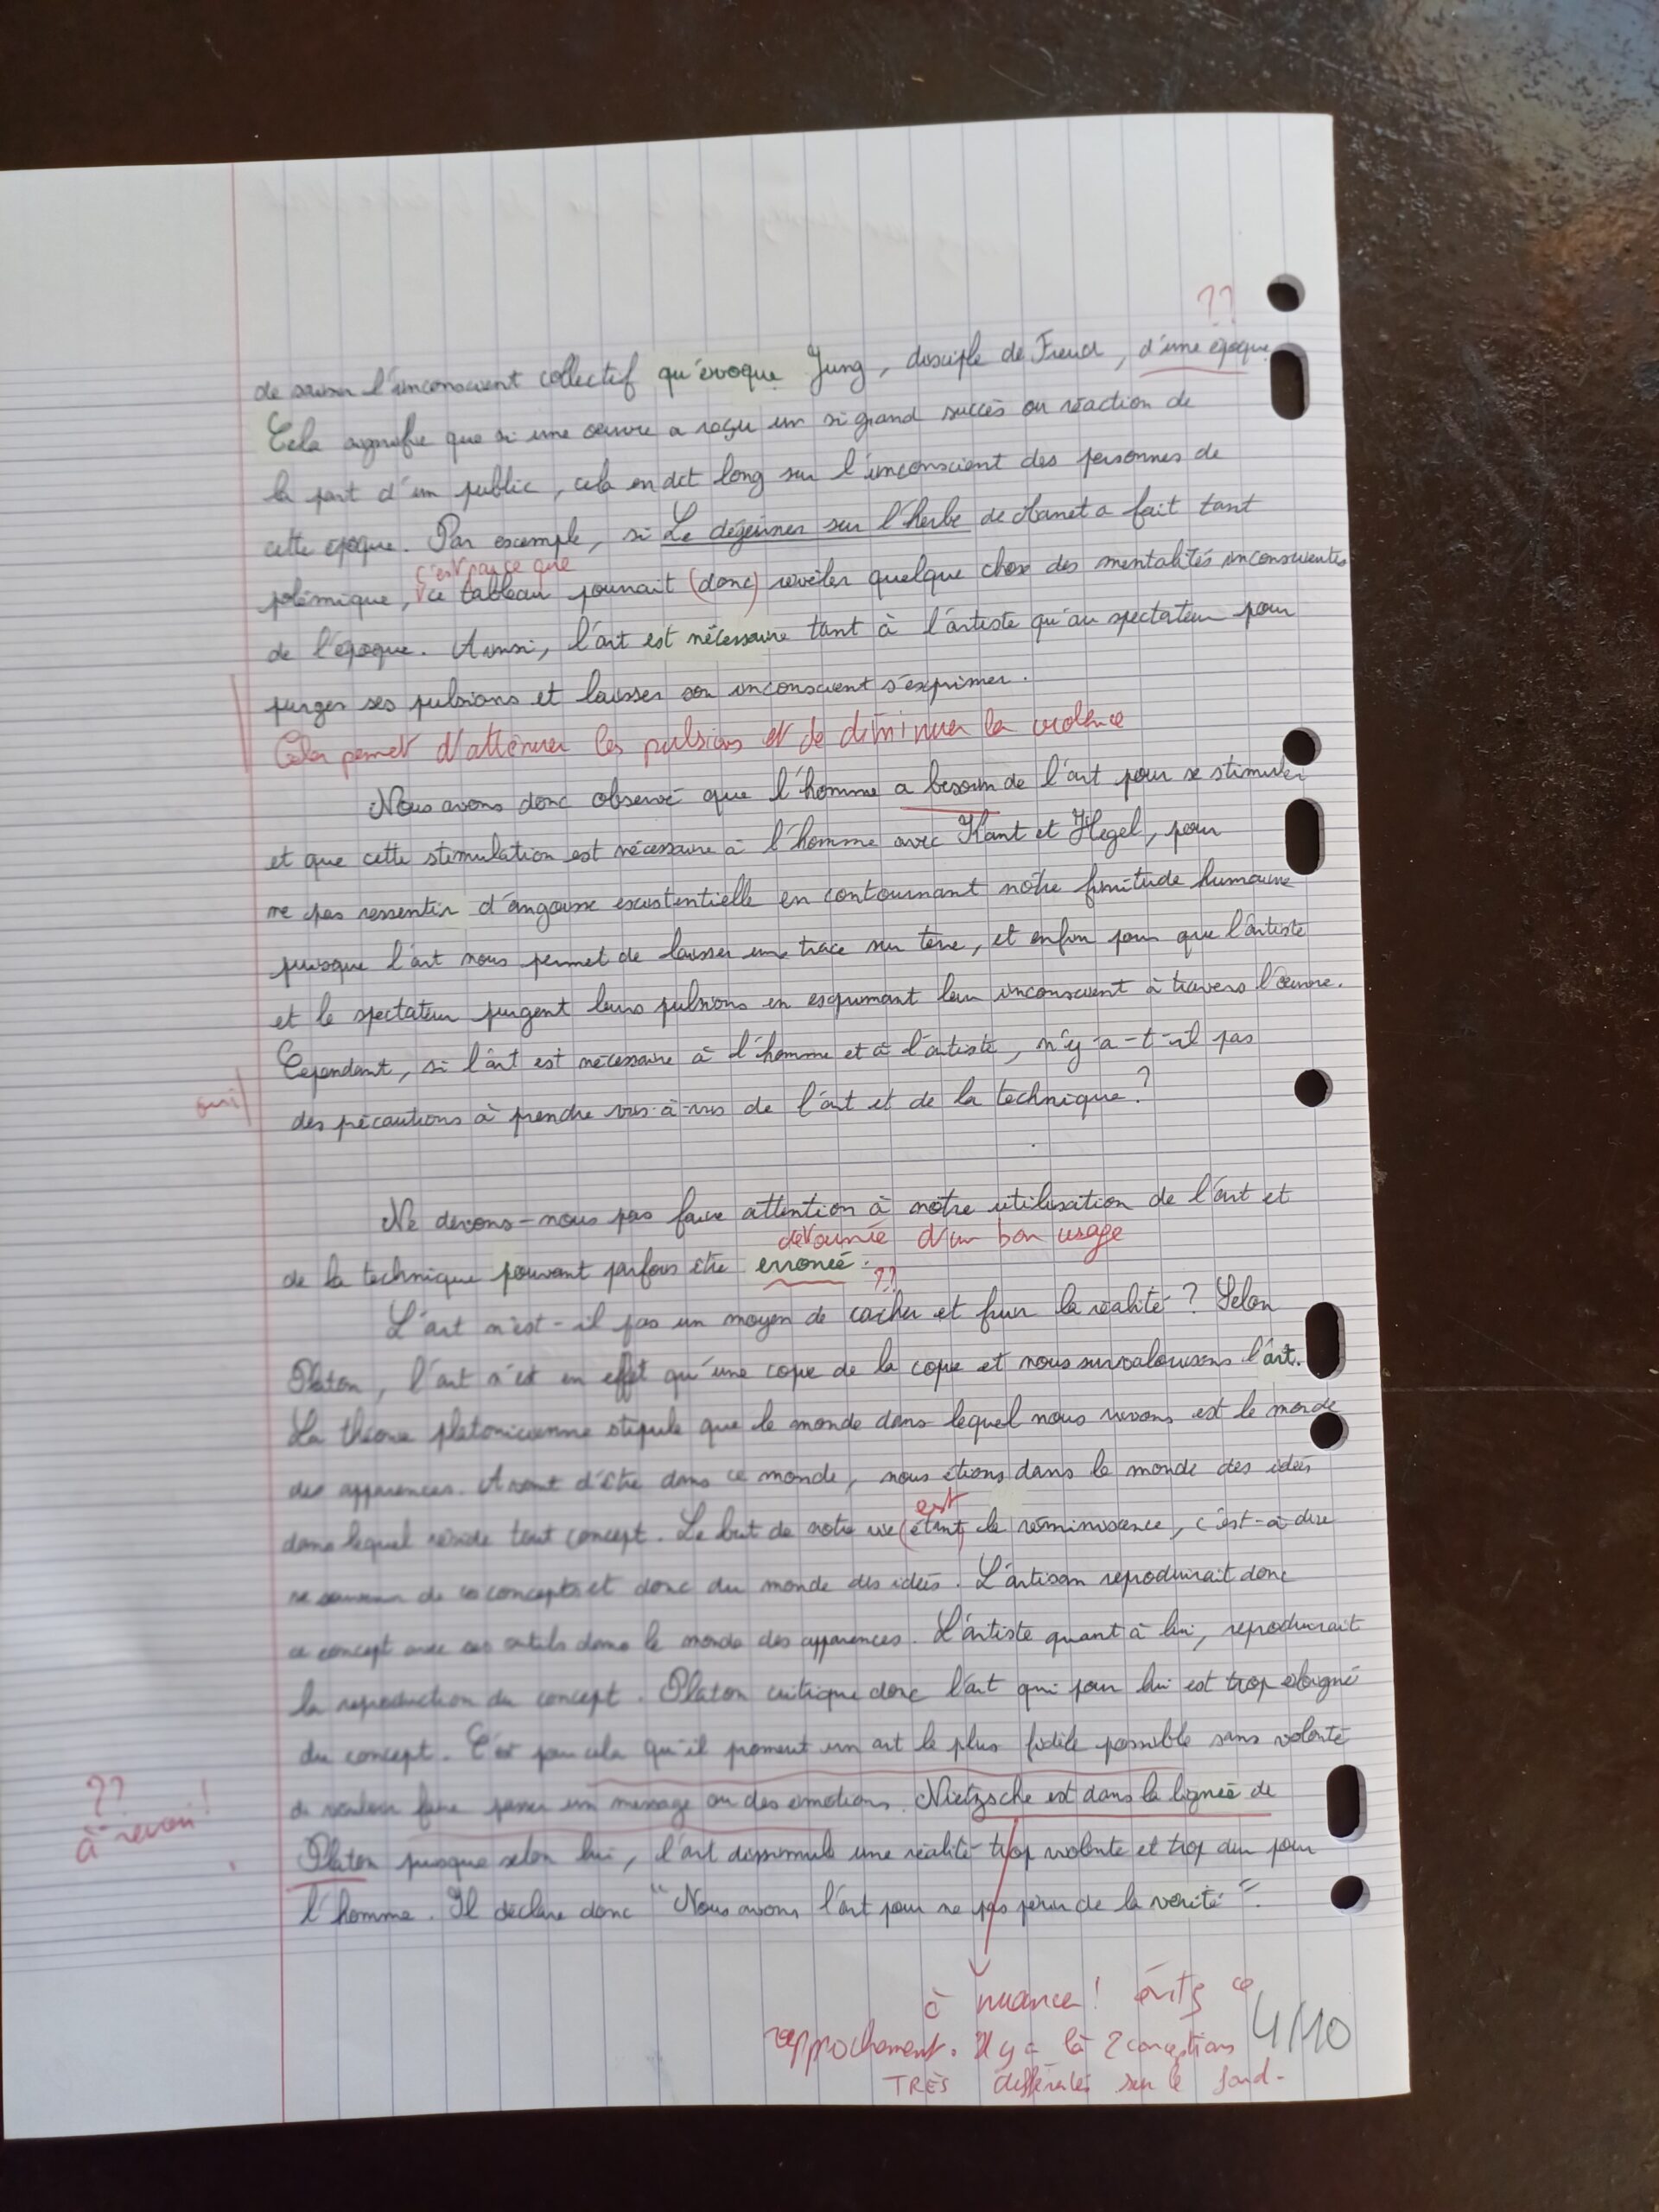 ??
de saisir l'inconscient collectif qu'évoque Jung, disciple de Freud, d'une époque
Cela signifie que si une oeuvre a reçu un si grand succès ou réaction de
la part d'un public, cela en dit long sur l'inconscient des personnes de
cette époque. Par exemple, si Le déjeuner sur l'herbe de Manet a fait tant
c'est parce que
polémique, ce tableau pourrait (donc) révéler quelque chose des mentalités inconscientes
de l'époque. Ainsi, l'art est nécessaire tant à l'artiste qu'au spectateur pour
purger ses pulsions et laisser son inconscient s'exprimer.
Cela permet d'atténuer les pulsions et de diminuer la violence
Nous avons donc observé que l'homme a besoin de l'art pour se stimuler
et que cette stimulation est nécessaire à l'homme avec Kant et Hegel, pour
ne pas ressentir d'angoisse existentielle en contournant notre finitude humaine
puisque l'art nous permet de laisser une trace sur terre, et enfin pour que l'artiste
et le spectateur purgent leurs pulsions en exprimant leur inconscient à travers l'oeuvre.
Cependant, si l'art est nécessaire à l'homme et à l'artiste, n'y-a-t-il pas
oui
des précautions à prendre vis-à-vis de l'art et de la technique ?
Ne devons-nous pas faire attention à notre utilisation de l'art et
détournée d'un bon usage
de la technique pouvant parfois être erronée.
??
L'art n'est-il pas un moyen de cacher et fuir la réalité ? Selon
Platon, l'art n'est en effet qu'une copie de la copie et nous survalorisons l'art.
La théorie platonicienne stipule que le monde dans lequel nous vivons est le monde
des apparences. Avant d'être dans ce monde, nous étions dans le monde des idées
est
dans lequel réside tout concept. Le but de notre vie (étant) la réminiscence, c'est-à-dire
se souvenir de ces concepts et donc du monde des idées. L'artisan reproduirait donc
ce concept avec ses outils dans le monde des apparences. L'artiste quant à lui, reproduirait
la reproduction du concept. Platon critique donc l'art qui pour lui est trop éloigné
du concept. C'est pour cela qu'il promeut un art le plus fidèle possible sans volonté
?? à revoir !
de vouloir faire passer un message ou des émotions. Nietzsche est dans la lignée de
Platon puisque selon lui, l'art dissimule une réalité trop violente et trop dur pour
l'homme. Il déclare donc "Nous avons l'art pour ne pas périr de la vérité".
à nuancer ! évitez ce
rapprochement. Il y a là 2 conceptions
TRÈS différentes sur le fond.
4/10